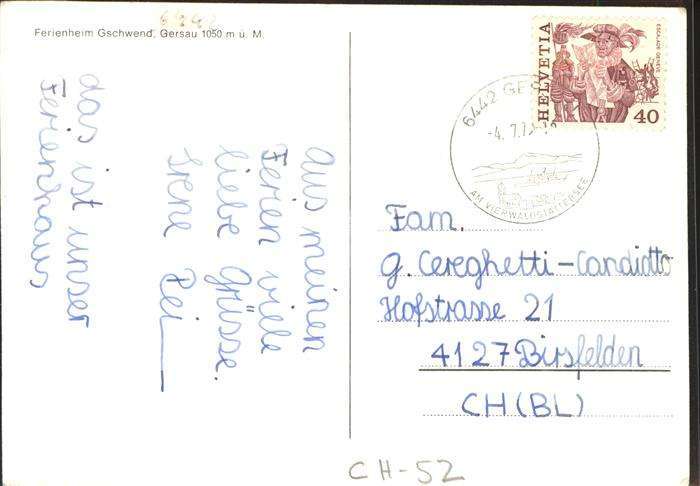 6442
Ferienheim Gschwend, Gersau 1050 m ü. M.
das ist unser
Ferienhaus
aus meinen
Ferien viele
liebe Grüsse.
Irene Rei
HELVETIA
ESCALADE GENEVE
40
6442 GE
-4. 7.7
AM VIERWALDSTÄTTERSEE
Fam.
G. Cereghetti-Candiotto
Hofstrasse 21
4127 Birsfelden
CH (BL)
CH-52